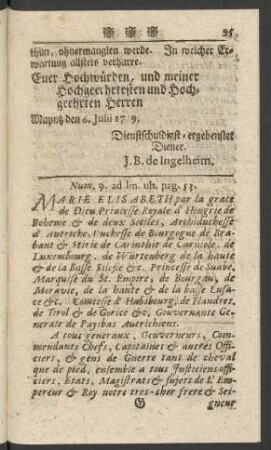 95
thun, ohnermanglen werde. In welcher Er-
wartung allstets verharre.
Euer Hochwürden, und meiner
Hochgeehrtesten und Hoch-
geehrten Herren
Mayntz den 6. Julii 17
Dienstschuldigst-ergebenster
Diener.
J. B. de Ingelheim.
Num. 9. ad lm. ult. pag. 53.
MARIE ELISABETH par la grace
de Dieu Princesse Royale d'Hongrie de
Boheme & de deux Seciles, Archiduchesse
d'Autriche, Duchesse de Bourgogne de Bra-
bant & Stirie de Carinthie de Carniole, de
Luxembourg, de Würtenberg de la haute
& de la Basse Silesie &c. Princesse de Suabe,
Marquise du St. Empire, de Bourgau, de
Moravie, de la haute & de la basse Lusa-
ce &c. Comtesse d'Habsbourg, de Flandres,
de Tirol & de Gorice &c. Gouvernante Ge-
nerale de Paysbas Autrichiens.
A tous generaux, Gouverneurs, Com-
mendants Chefs, Capitaines & autres Offi-
ciers, & gens de Guerre tant de cheval
que de pied, ensemble a tous Justiciers offi-
ciers, Etats, Magistrats & sujets de L'Em-
pereur & Roy notre tres-cher frere & Sei-
gneur